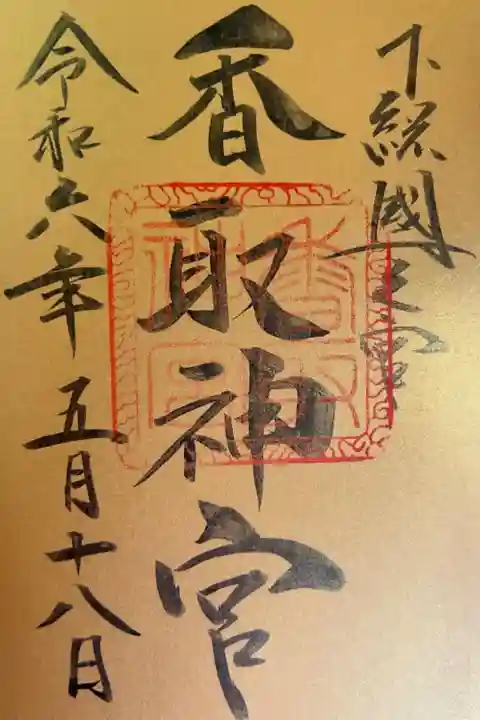 下総國一之宮
香取神宮
令和六年五月十八日